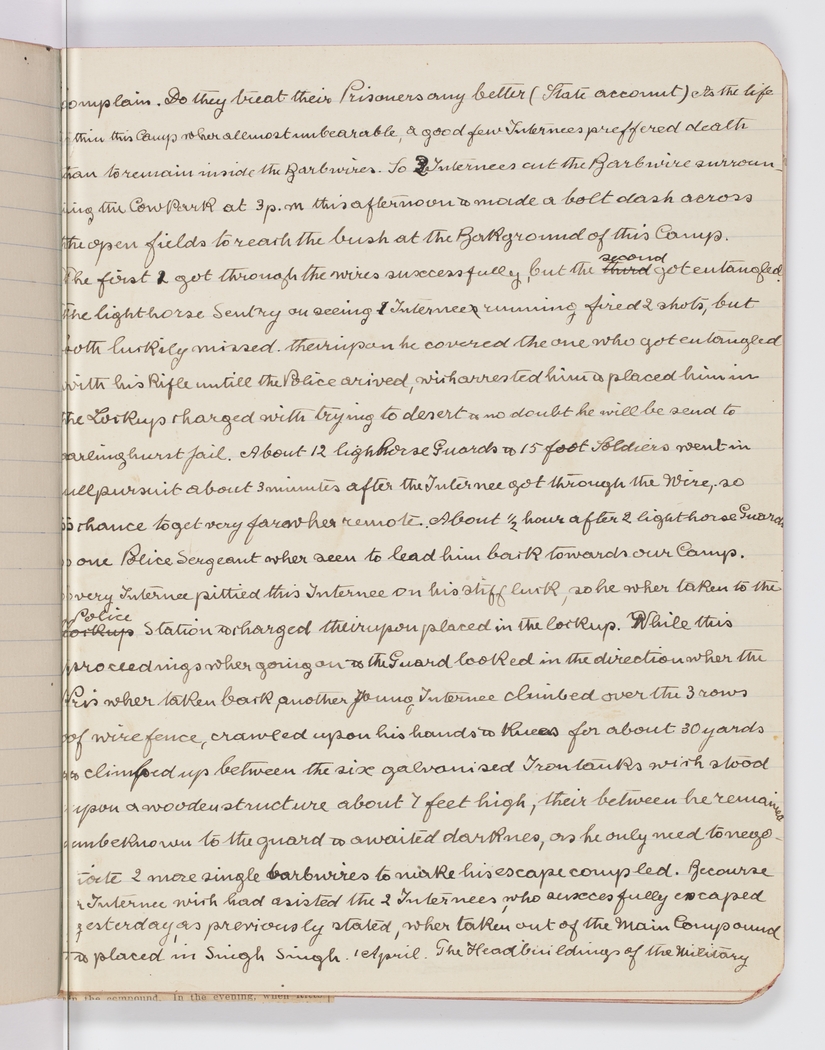 complain. Do they treat their Prisoners any better (State account) As the life
within this Camp wher allmost unbearable, a good few Internees preffered death
than to remain inside the Barbwires. So 2 Internees cut the Barbwire surroun-
ing the CowPark at 3 p.m this afternoon & made a bolt dash across
the open fields to reach the bush at the Bakground of this Camp.
second
The first 1 got through the wires suxcessfully, but the third got entangled.
The lighthorse Sentry on seeing 1 Internee running fired 2 shots, but
both luckily missed. theirupon he covered the one who got entangled
with his Rifle untill the Police arived, wich arrested him & placed him in
the Lockup charged with trying to desert & no doubt he will be send to
Darlinghurst Jail. About 12 lighhorse Guards & 15 foot Soldiers went in
full pursuit about 3 minutes after the Internee got through the Wire, so
chance to get very far wher remote. About ½ hour after 2 light horse Guards
& one Police Sergeant wher seen to lead him back towards our Camp.
Every Internee pittied this Internee on his stiff luck, so he wher taken to the
Police
Lockup Station & charged theirupon placed in the lockup. While this
proceedings wher going on & the Guard looked in the direction wher the
Pris wher taken back, another Young Internee climbed over the 3 rows
of wire fence, crawled upon his hands & knees for about 30 yards
& climbed up between the six galvanised Irontanks wich stood
upon a wooden structure about 7 feet high, their between he remained
unbeknown to the guard & awaited darknes, as he only need to nego-
iate 2 more single barbwires to make his escape compled. Becourse
Internee wich had asisted the 2 Internees, who suxcesfully excaped
yesterday, as previously stated, wher taken out of the Main Compound
& placed in Singh Singh. 1 April. The Headbuildings of the Military
in the compound. In the evening, when